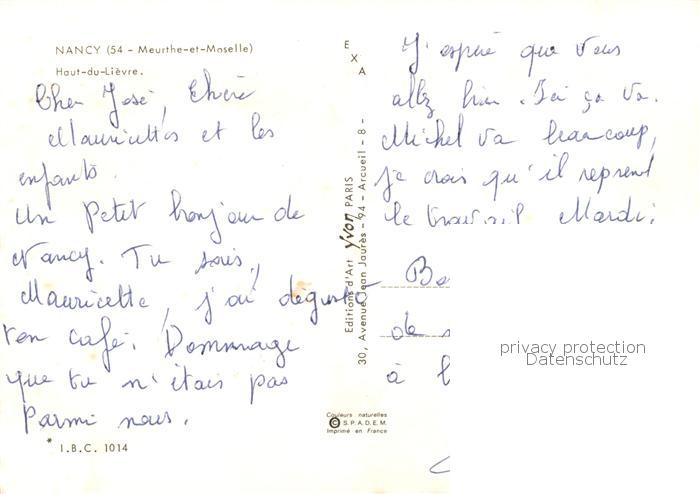 NANCY (54 - Meurthe-et-Moselle)
Haut-du-Lièvre.
Cher José, Chère
Mauricette et les
enfants.
Un Petit bonjour de
Nancy. Tu sais,
Mauricette, j'ai dégusté
ton café. Dommage
que tu n'étais pas
Parmi nous.
* I.B.C. 1014
EXA
Editions d'Art yvon PARIS
30, Avenue Jean Jaurès - 94 - Arcueil - 8 -
Couleurs naturelles
© S.P.A.D.E.M.
Imprimé en France
J'espère que vous
allez bien. Ici ça va.
Michel va beaucoup,
je crois qu'il reprend
le travail Mardi.
de
à
privacy protection
Datenschutz